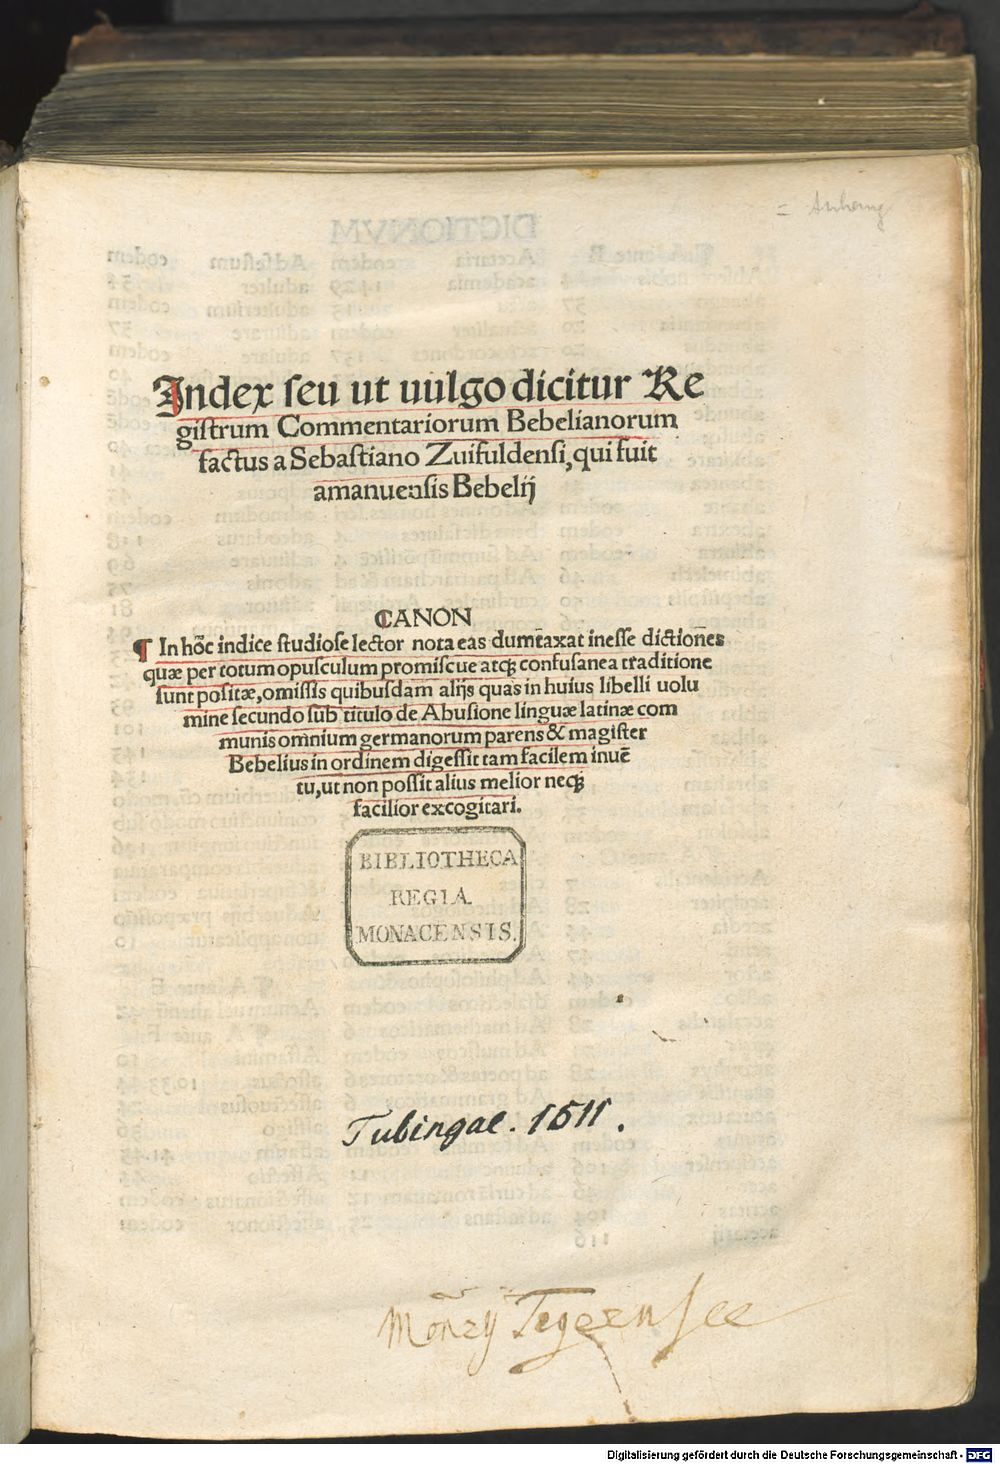 = Anhang
Index seu ut uulgo dicitur Re
gistrum Commentariorum Bebelianorum
factus a Sebastiano Zuifuldensi, qui fuit
amanuensis Bebelij
CANON
¶ In hõc indice studiose lector nota eas dumtaxat inesse dictiones
quæ per totum opusculum promiscue atqꝫ confusanea traditione
sunt positæ, omissis quibusdam alijs quas in huius libelli uolu
mine secundo sub titulo de Abusione linguæ latinæ com
munis omnium germanorum parens & magister
Bebelius in ordinem digessit tam facilem inuẽ
tu, ut non possit alius melior neqꝫ
facilior excogitari.
BIBLIOTHECA
REGIA
MONACENSIS.
Tubingae. 1511.
Mõnrij Tegernsee
Digitalisierung gefördert durch die Deutsche Forschungsgemeinschaft - DFG